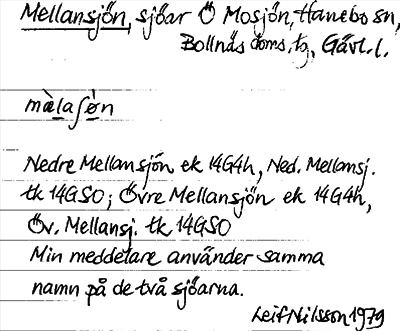 Mellansjön, sjöar Ö Mosjön, Hanebo sn,
Bollnäs doms. tg, Gävl. l.
mὲlaʃ
Nedre Mellansjön ek 14G4h, Ned. Mellansj.
tk 14GSO; Övre Mellansjön ek 14G4h,
Öv. Mellansj. tk 14GSO
Min meddelare använder samma
namn på de två sjöarna.
Leif Nilsson 1979